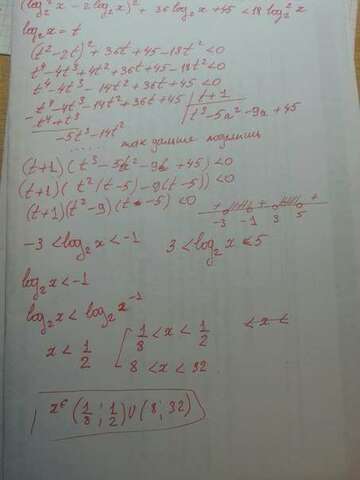 (log₂²x - 2log₂x)² + 36log₂x + 45 < 18log₂²x
log₂x = t
(t² - 2t)² + 36t + 45 - 18t² < 0
t⁴ - 4t³ + 4t² + 36t + 45 - 18t² < 0
t⁴ - 4t³ - 14t² + 36t + 45 < 0
t⁴ - 4t³ - 14t² + 36t + 45 | t + 1
t⁴ + t³ t³ - 5a² - 9a + 45
-5t³ - 14t²
...... так дальше поделишь
(t+1)(t³ - 5t² - 9t + 45) < 0
(t+1)(t²(t-5) - 9(t-5)) < 0
(t+1)(t² - 9)(t - 5) < 0 + + +
-3 -1 3 5
-3 < log₂x < -1 3 < log₂x < 5
log₂x < -1
log₂x < log₂x⁻¹
x < 1/2 [ 1/8 < x < 1/2 < x <
8 < x < 32
x ∈ (1/8; 1/2) ∪ (8; 32)